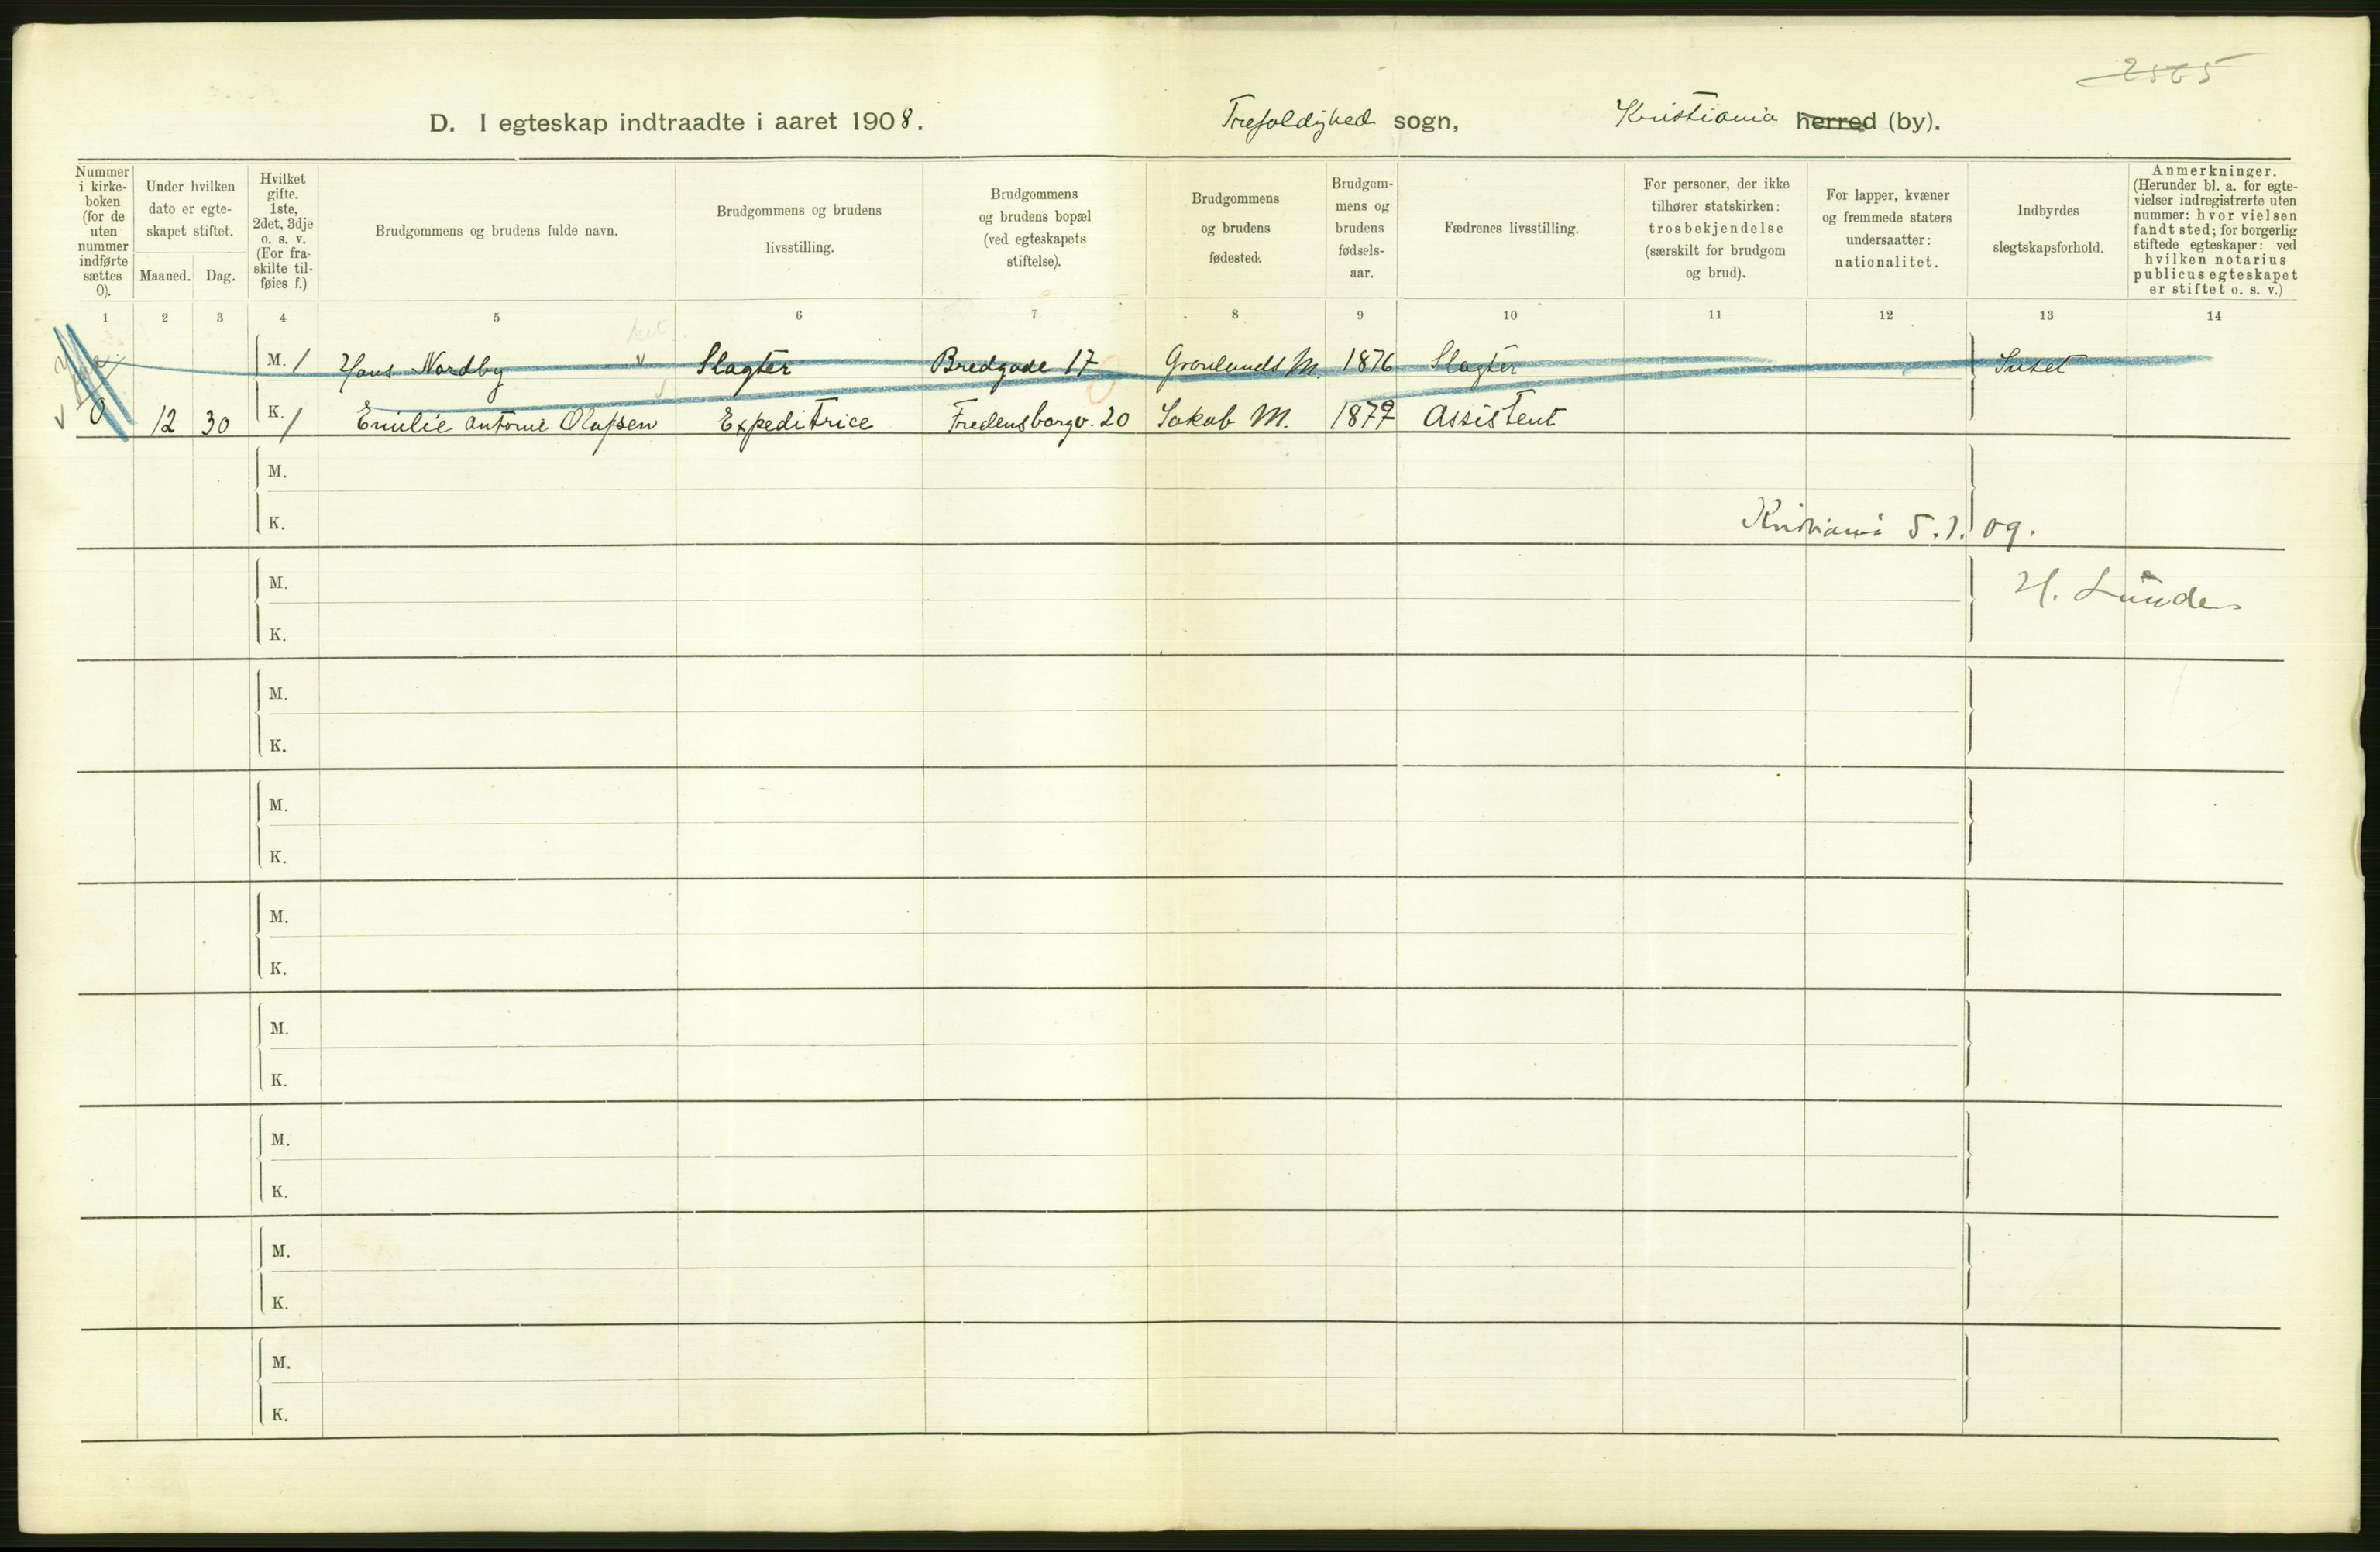 D. I egteskap indtraadte i aaret 1908. Trefoldighed sogn, Kristiania herred (by).
Nummer
i kirke-
boken
(for de
uten
nummer
indførte
sættes
0).
Under hvilken
dato er egte-
skapet stiftet.
Maaned. Dag.
Hvilket
gifte.
1ste,
2det, 3dje
o. s. v.
(For fra-
skilte til-
føies f.)
Brudgommens og brudens fulde navn.
Brudgommens og brudens
livsstilling.
Brudgommens
og brudens bopæl
(ved egteskapets
stiftelse).
Brudgommens
og brudens
fødested.
Brudgom-
mens og
brudens
fødsels-
aar.
Fædrenes livsstilling.
For personer, der ikke
tilhører statskirken:
trosbekjendelse
(særskilt for brudgom
og brud).
For lapper, kvæner
og fremmede staters
undersaatter:
nationalitet.
Indbyrdes
slegtskapsforhold.
Anmerkninger.
(Herunder bl. a. for egte-
vielser indregistrerte uten
nummer: hvor vielsen
fandt sted; for borgerlig
stiftede egteskaper: ved
hvilken notarius
publicus egteskapet
er stiftet o. s. v.)
1 2 3 4 5 6 7 8 9 10 11 12 13 14
M. 1 Hans Nordby Slagter Bredgade 17 Grønlands M. 1876 Slagter Intet
0 12 30 K. 1 Emilie Antonie Olafsen Expeditrice Fredensborgv. 20 Jakob M. 1879 Assistent
M.
K. Kristiania 5.1.09.
M. H. Lunde
K.
M.
K.
M.
K.
M.
K.
M.
K.
M.
K.
M.
K.
M.
K.